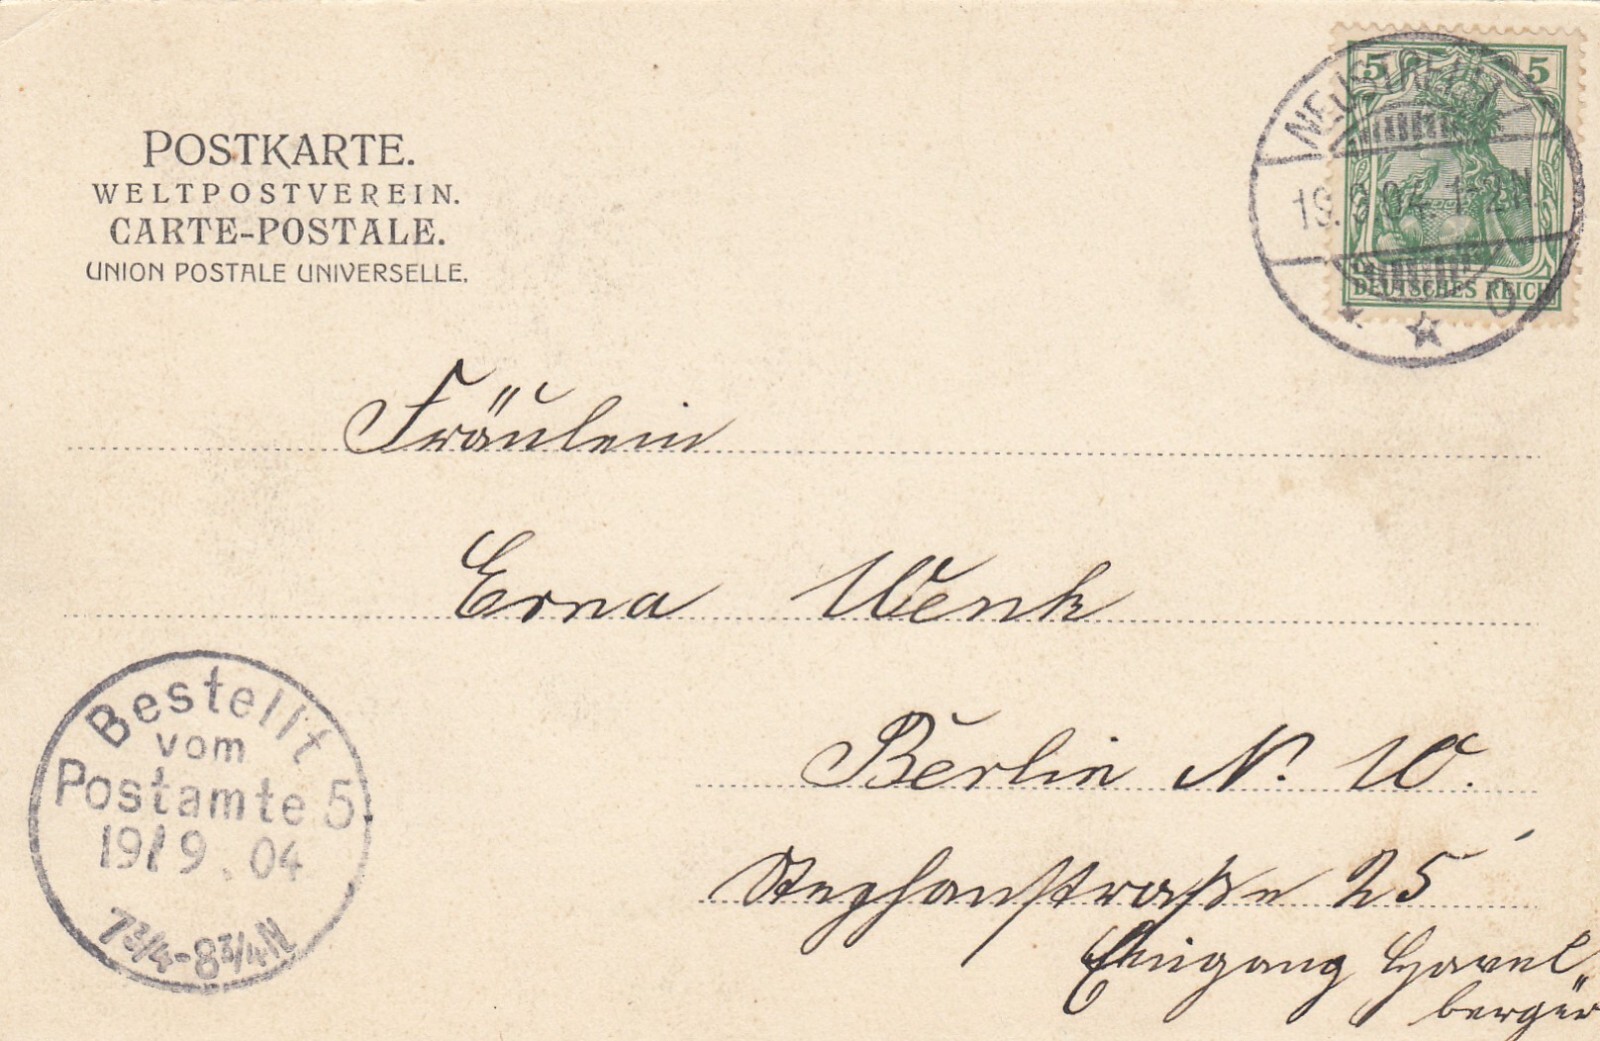 POSTKARTE.
WELTPOSTVEREIN.
CARTE-POSTALE.
UNION POSTALE UNIVERSELLE.
5 5
DEUTSCHES REICH
19. 9. 04. 1-2N.
Fräulein
Erna Wenk
Berlin N. W.
Stephanstraße 25
Eingang Havel„
berger
Bestellt
vom
Postamte 5
19/9. 04
7¾-8¾N